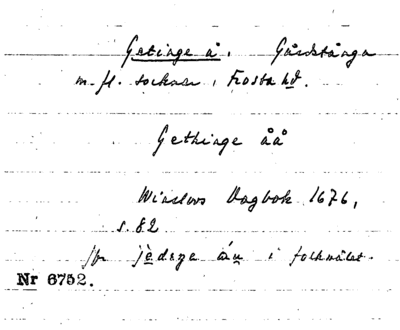 Getinge å. Gårdstånga
m. fl. socknar, Frosta hd.
Gethinge åå
Winslows Dagbok 1676,
s. 82
jfr jèdege áu i folkmålet.
Nr 6752.